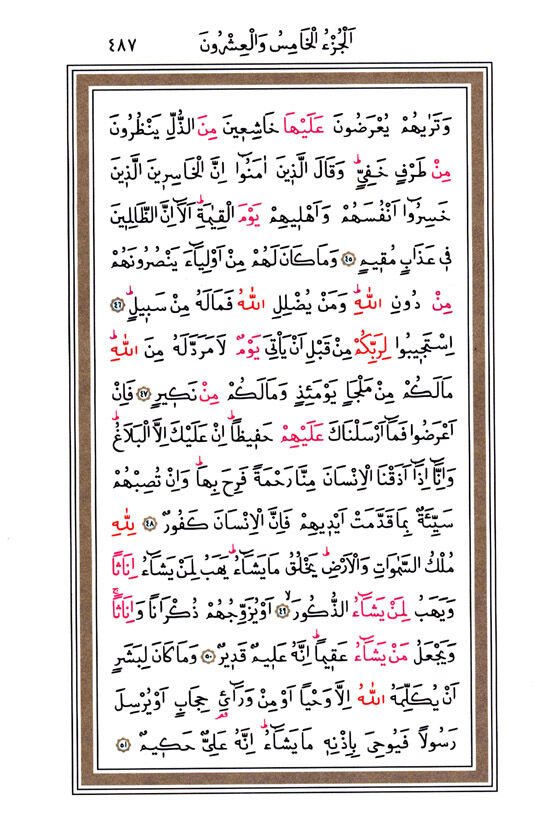 اَلْجُزْءُ الْخَامِسُ وَالْعِشْرُونَ ٤٨٧
وَتَرٰيهُمْ يُعْرَضُونَ عَلَيْهَا خَاشِع۪ينَ مِنَ الذُّلِّ يَنْظُرُونَ
مِنْ طَرْفٍ خَفِيٍّۜ وَقَالَ الَّذ۪ينَ اٰمَنُٓوا اِنَّ الْخَاسِر۪ينَ الَّذ۪ينَ
خَسِرُٓوا اَنْفُسَهُمْ وَاَهْل۪يهِمْ يَوْمَ الْقِيٰمَةِۜ اَلَٓا اِنَّ الظَّالِم۪ينَ
ف۪ي عَذَابٍ مُق۪يمٍ ﴿٤٥﴾ وَمَا كَانَ لَهُمْ مِنْ اَوْلِيَٓاءَ يَنْصُرُونَهُمْ
مِنْ دُونِ اللّٰهِۜ وَمَنْ يُضْلِلِ اللّٰهُ فَمَا لَهُ مِنْ سَب۪يلٍۜ ﴿٤٦﴾
اِسْتَج۪يبُوا لِرَبِّكُمْ مِنْ قَبْلِ اَنْ يَأْتِيَ يَوْمٌ لَا مَرَدَّ لَهُ مِنَ اللّٰهِۜ
مَا لَكُمْ مِنْ مَلْجَأٍ يَوْمَئِذٍ وَمَا لَكُمْ مِنْ نَك۪يرٍ ﴿٤٧﴾ فَاِنْ
اَعْرَضُوا فَمَٓا اَرْسَلْنَاكَ عَلَيْهِمْ حَف۪يظاًۜ اِنْ عَلَيْكَ اِلَّا الْبَلَاغُۜ
وَاِنَّٓا اِذَٓا اَذَقْنَا الْاِنْسَانَ مِنَّا رَحْمَةً فَرِحَ بِهَاۚ وَاِنْ تُصِبْهُمْ
سَيِّئَةٌ بِمَا قَدَّمَتْ اَيْد۪يهِمْ فَاِنَّ الْاِنْسَانَ كَفُورٌ ﴿٤٨﴾ لِلّٰهِ
مُلْكُ السَّمٰوَاتِ وَالْاَرْضِۜ يَخْلُقُ مَا يَشَٓاءُۜ يَهَبُ لِمَنْ يَشَٓاءُ اِنَاثاً
وَيَهَبُ لِمَنْ يَشَٓاءُ الذُّكُورَۙ ﴿٤٩﴾ اَوْ يُزَوِّجُهُمْ ذُكْرَاناً وَاِنَاثاًۚ
وَيَجْعَلُ مَنْ يَشَٓاءُ عَق۪يماًۜ اِنَّهُ عَل۪يمٌ قَد۪يرٌ ﴿٥٠﴾ وَمَا كَانَ لِبَشَرٍ
اَنْ يُكَلِّمَهُ اللّٰهُ اِلَّا وَحْياً اَوْ مِنْ وَرَٓائِ۬ حِجَابٍ اَوْ يُرْسِلَ
رَسُولاً فَيُوحِيَ بِاِذْنِه۪ مَا يَشَٓاءُۜ اِنَّهُ عَلِيٌّ حَك۪يمٌ ﴿٥١﴾